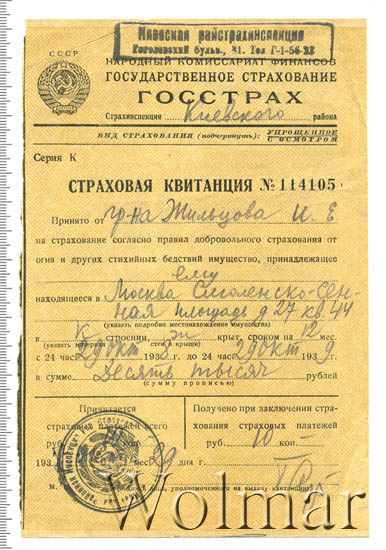 Киевская райстрахинспекция
Гоголевский бульв., 31. Тел Г-1-56-23
СССР
НАРОДНЫЙ КОМИССАРИАТ ФИНАНСОВ
ГОСУДАРСТВЕННОЕ СТРАХОВАНИЕ
ГОССТРАХ
Страхинспекция Киевского района
ВИД СТРАХОВАНИЯ (подчеркнуть): УПРОЩЕННОЕ
С ОСМОТРОМ
Серия К
СТРАХОВАЯ КВИТАНЦИЯ № 114105
Принято от гр-на Жильцова И. Е
на страхование согласно правил добровольного страхования от
огня и других стихийных бедствий имущество, принадлежащее
ему
находящееся в Москва Смоленско-Сен-
ная площадь д 27 кв. 44
(указать подробно местонахождение имущества)
в К строении, жп крыт, сроком на 12 мес.
(указать материал стен и крыши)
с 24 час. 2 окт 193 г. до 24 час. 2 окт 193 г.
в сумме десять тысяч рублей
(сумму прописью)
Причитается
страховых платежей всего
Получено при заключении стра-
хования страховых платежей
руб. 10 коп -
193 мес. 29 дня
М.
лица, уполномоченного на выдачу квитанции
Wolmar